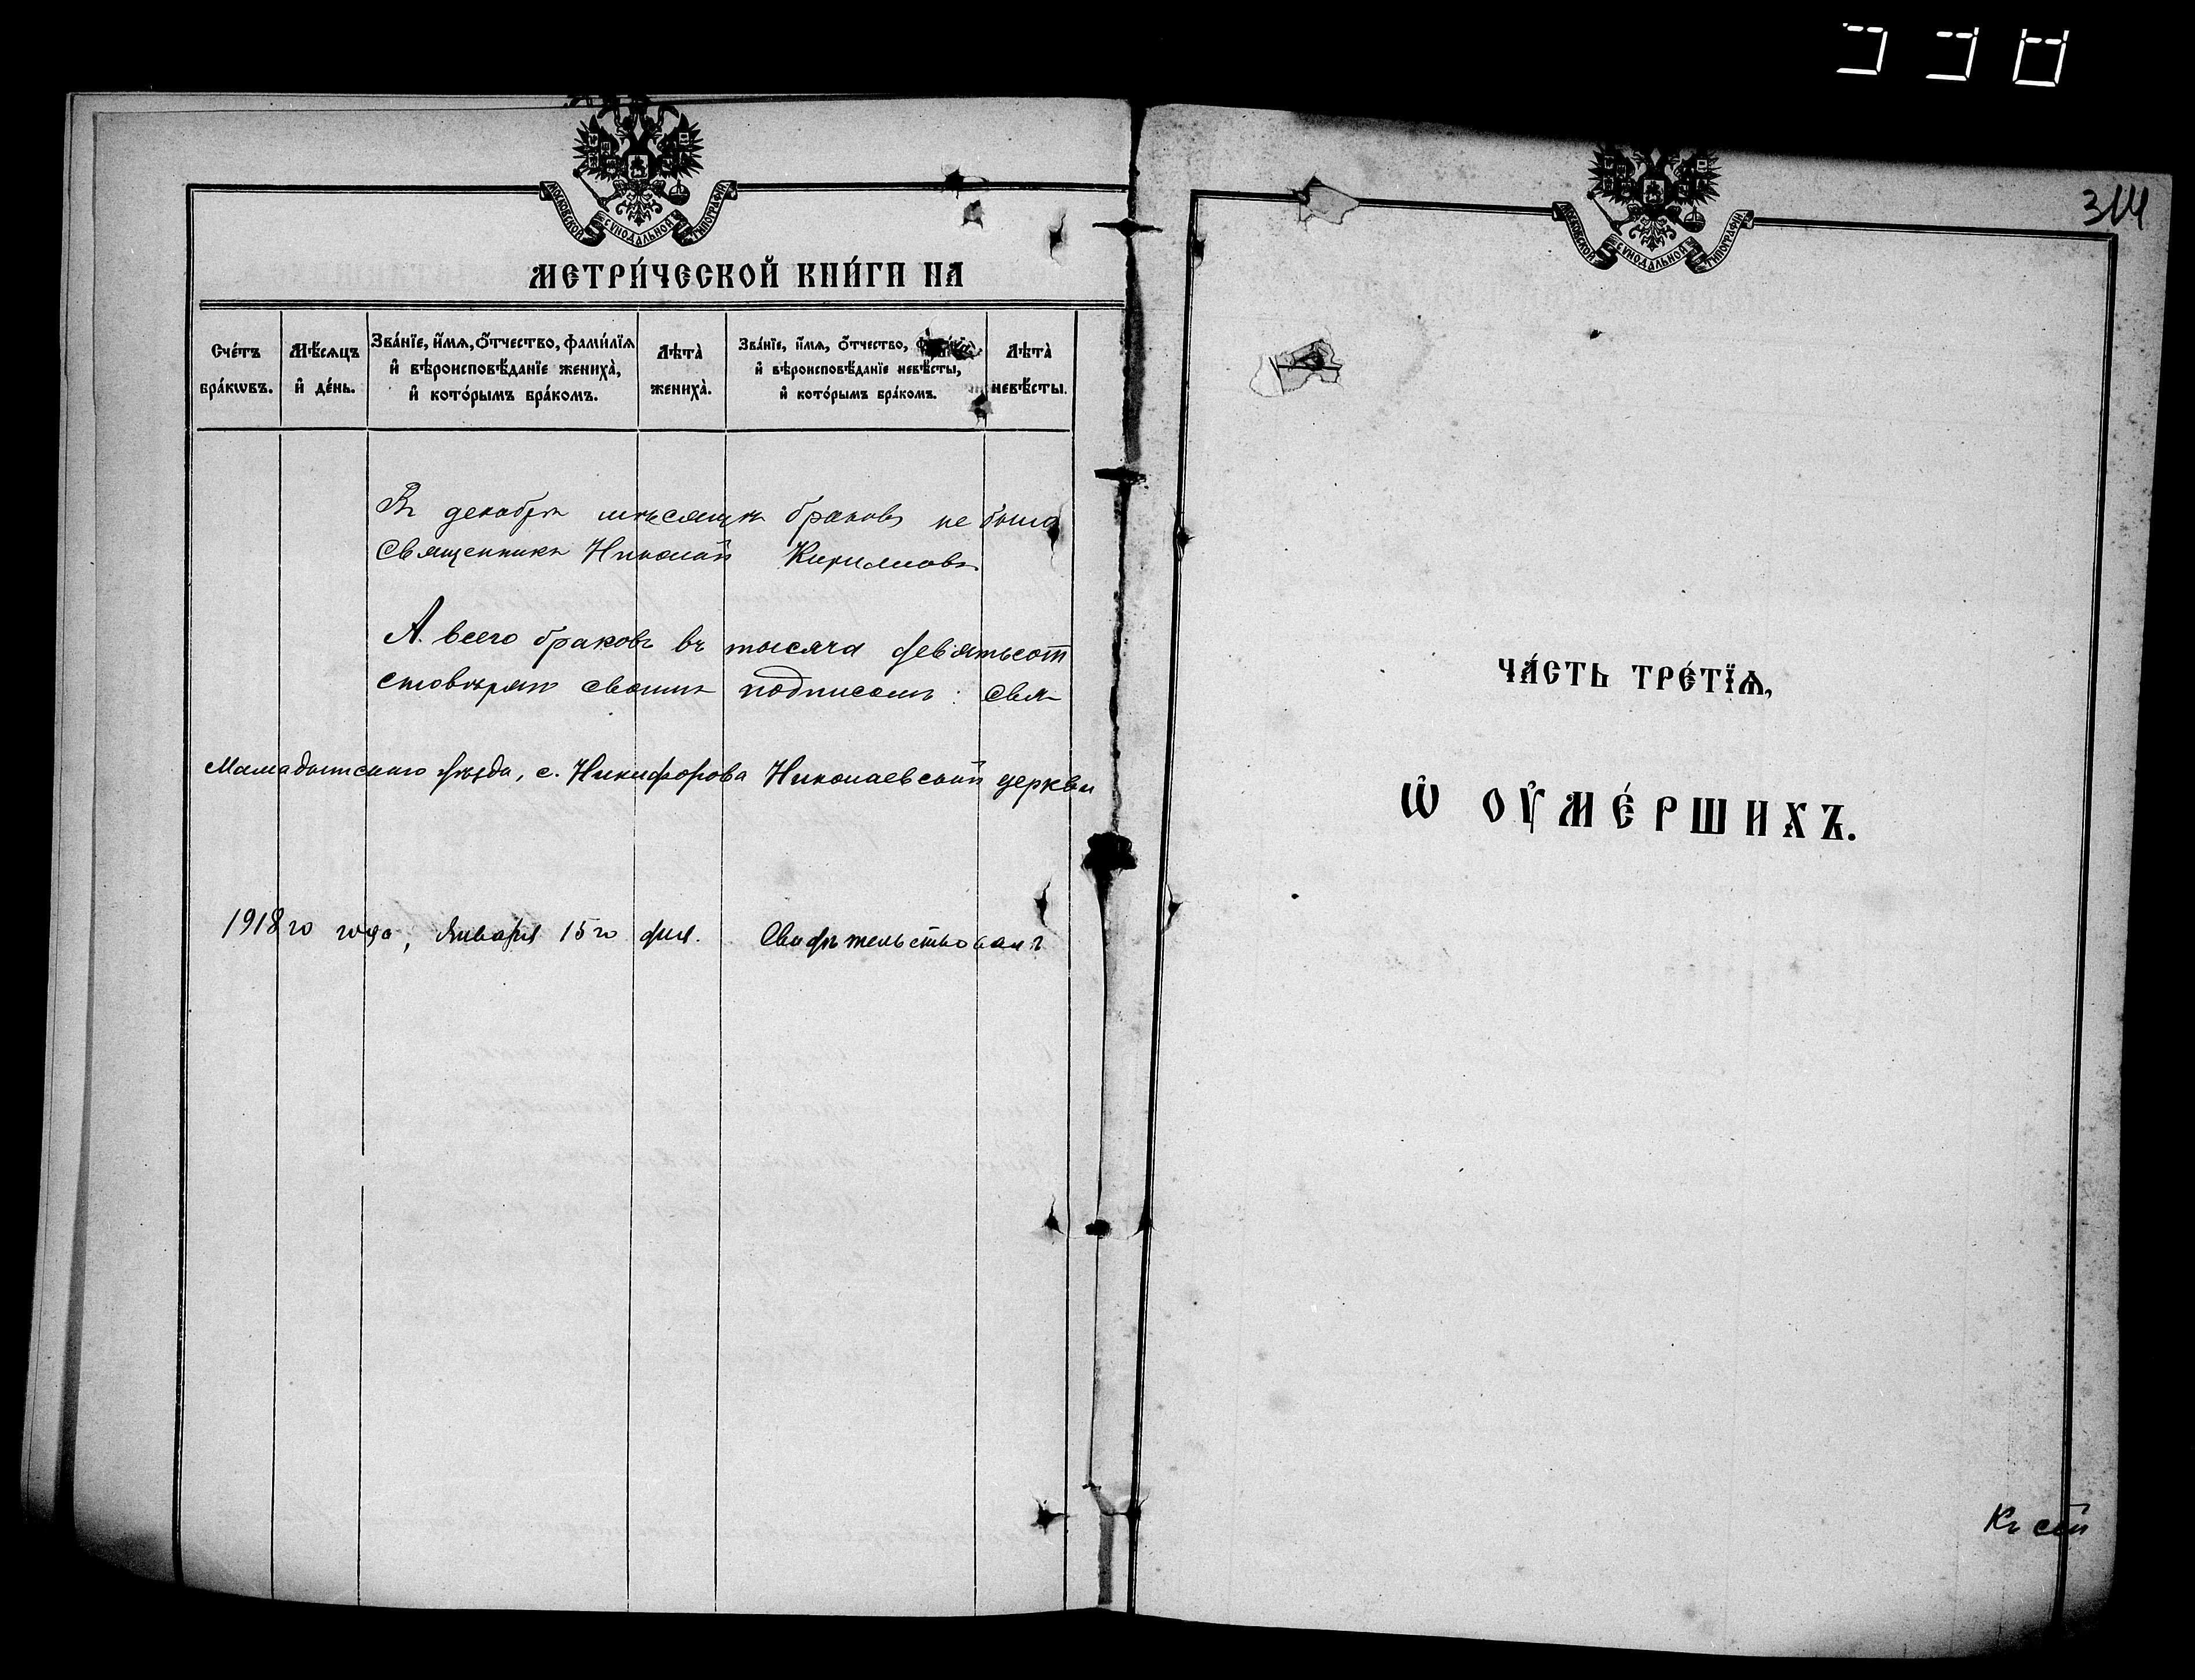 МОСКОВСКОЙ СѴНОДАЛЬНОЙ ТИПОГРАФІИ
МЕТРИ́ЧЕСКОЙ КНИ́ГИ НА
Сче́тъ бра́кωвъ.
Мѣ́сяцъ и҆ де́нь.
Зва́нїе, и҆́мѧ, ѻ҆́тчество, фами́лїѧ и҆ вѣроисповѣ́данїе жениха̀, и҆ кото́рымъ бра́комъ.
Лѣта̀ жениха̀.
Зва́нїе, и҆́мѧ, ѻ҆́тчество, и҆ вѣроисповѣ́данїе невѣ́сты, и҆ кото́рымъ бра́комъ.
Лѣта̀ невѣ́сты.
Въ декабрѣ мѣсяцѣ браковъ не было
Священникъ Николай Кирилловъ
А всего браковъ въ тысяча девятьсот
стовѣряю своимъ подписомъ: Свя-
Мамадышскаго уѣзда, с. Никифорова Николаевской церкви
1918 го года, Января 15 го дня. Свидѣтельствовалъ
МОСКОВСКОЙ СѴНОДАЛЬНОЙ ТИПОГРАФІИ
314
ЧА́СТЬ ТРЕ́ТЇѦ,
Ѽ ОУ҆МЕ́РШИХЪ.
Къ сей